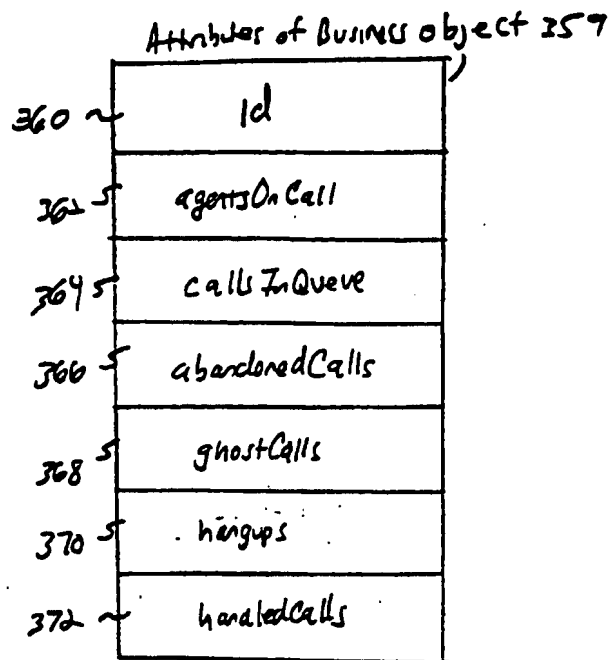 Attributes of Business object 359
360 Id
362 agentsOnCall
364 callsInQueue
366 abandonedCalls
368 ghostCalls
370 hangups
372 handledCalls